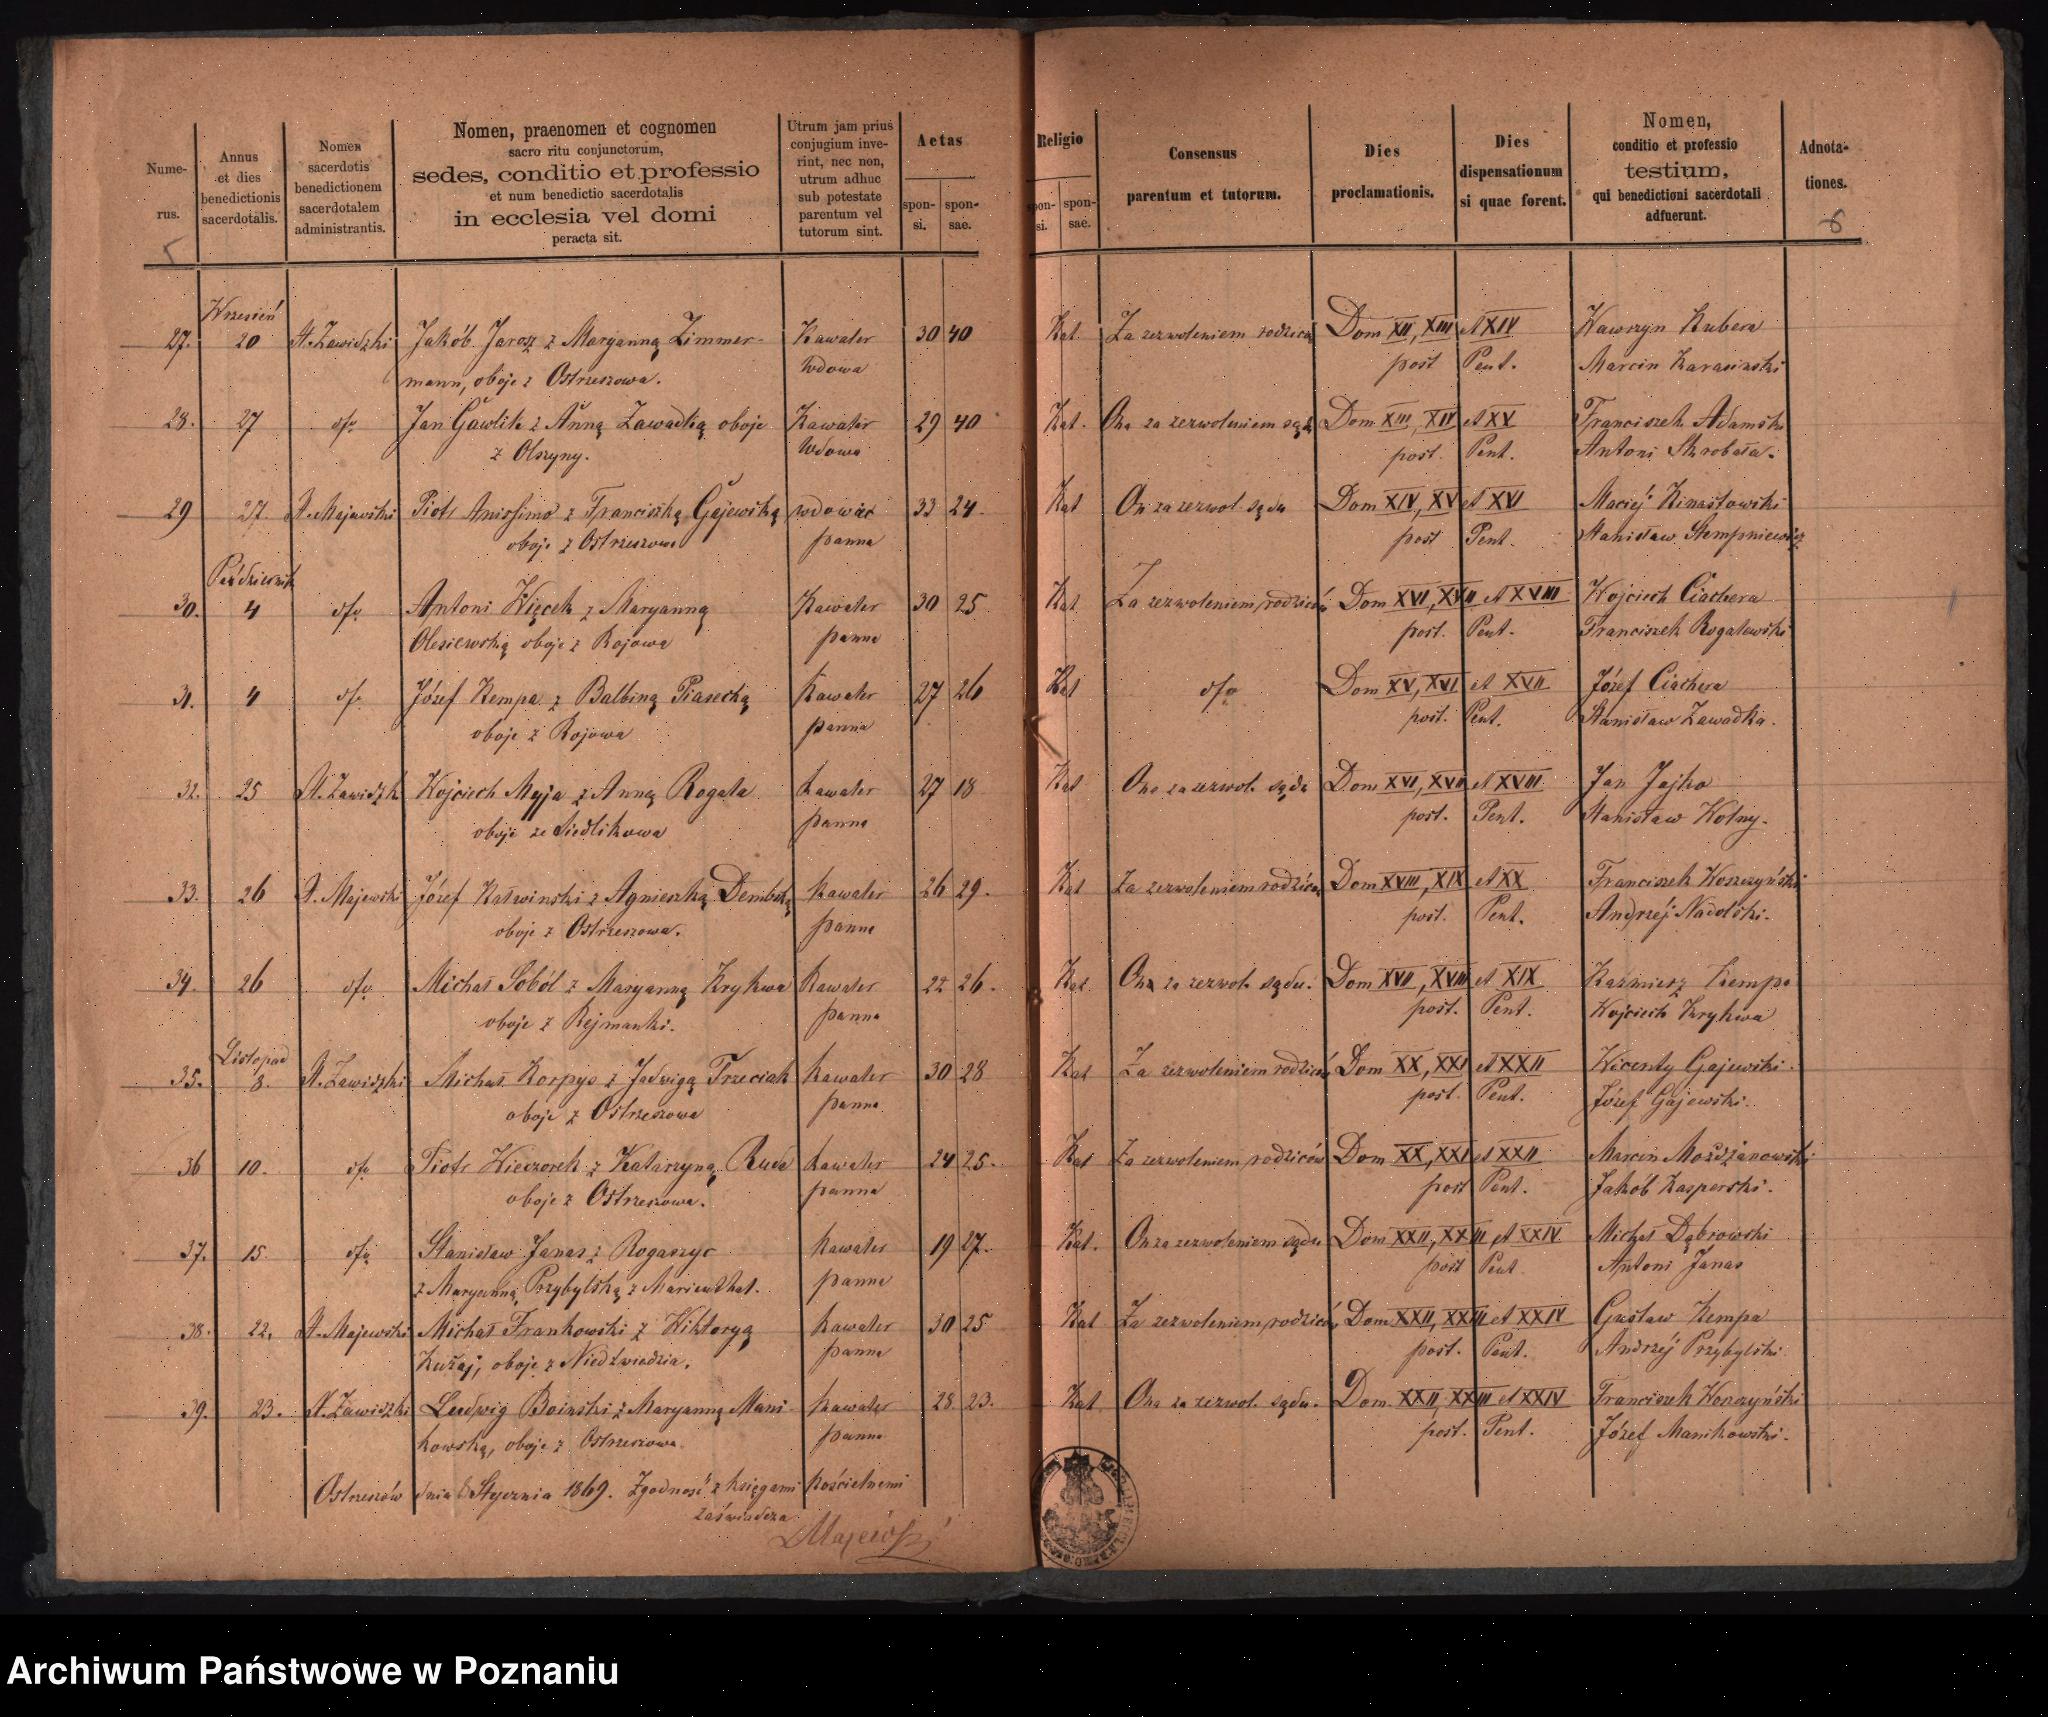 Nume-
rus.
Annus
et dies
benedictionis
sacerdotalis.
Nomen
sacerdotis
benedictionem
sacerdotalem
administrantis.
Nomen, praenomen et cognomen
sacro ritu conjunctorum,
sedes, conditio et professio
et num benedictio sacerdotalis
in ecclesia vel domi
peracta sit.
Utrum jam prius
conjugium inve-
rint, nec non,
utrum adhuc
sub potestate
parentum vel
tutorum sint.
Aetas
spon-
si.
spon-
sae.
Religio
spon-
si.
spon-
sae.
Consensus
parentum et tutorum.
Dies
proclamationis.
Dies
dispensationum
si quae forent.
Nomen,
conditio et professio
testium,
qui benedictioni sacerdotali
adfuerunt.
Adnota-
tiones.
Wrzesień
27. 20 Zawidzki Jakób Jarosz z Maryanną Zimmer- Kawaler 30 40 Kat. Za zezwoleniem rodziców Dom XII, XIII et XIV Wawrzyn Kubera
mann, oboje z Ostrzeszowa. Wdowa post Pent. Marcin Karasinski
28. 27 dto Jan Gawlik z Anną Zawadką oboje Kawaler 29 40 Kat. Ona za zezwoleniem sądu Dom XIII, XIV et XV Franciszek Adamski
z Olszyny. Wdowa post. Pent. Antoni Skrobała.
29 27. Majewski Piotr Anissimo z Franciszką Gajewską wdowiec 33 24. Kat On za zezwol. sądu Dom XIV, XV et XVI Maciej Kinastowski
oboje z Ostrzeszowa panna post Pent. Stanisław Stempniewicz
Październik
30. 4 dto Antoni Więcek z Maryanną Kawaler 30 25 Kat Za zezwoleniem rodziców Dom XVI, XVII et XVIII Wojciech Ciachera
Olesiewską oboje z Rojowa panna post. Pent. Franciszek Rogalewski
31. 4 dto Józef Kempa z Balbiną Piasecką Kawaler 27 26 Kat dto Dom XV, XVI et XVII Józef Ciachera
oboje z Rojowa panna post. Pent. Stanisław Zawadka.
32. 25 Zawidzki Wojciech Myja z Anną Rogala Kawaler 27 18 Kat Ona za zezwol. sądu Dom XVI, XVII et XVIII Jan Jajko
oboje ze Siedlikowa panna post. Pent. Stanisław Kolny.
33. 26 Majewski Józef Kalwinski z Agnieszką Dembską Kawaler 26 29. Kat Za zezwoleniem rodziców Dom XVIII, XIX et XX Franciszek Korszyński
oboje z Ostrzeszowa. panna post. Pent. Andrzéj Nadolski.
34. 26 dto Michał Soból z Maryanną Krykwa Kawaler 22 26. Kat Ona za zezwol. sądu. Dom XVII, XVIII et XIX Kaźmierz Kempa
oboje z Rejmanki. panna post. Pent. Wojciech Krykwa
Listopad
35. 8. Zawidzki Michał Korpys z Jadwigą Trzeciak Kawaler 30 28 Kat Za zezwoleniem rodziców Dom XX, XXI et XXII Wicenty Gajewski.
oboje z Ostrzeszowa panna post. Pent. Józef Gajewski.
36 10. dto Piotr Wieczorek z Katarzyną Ruda Kawaler 24 25. Kat Za zezwoleniem rodziców Dom XX, XXI et XXII Marcin Możdżanowski
oboje z Ostrzeszowa. panna post Pent. Jakób Kasperski.
37. 15. dto Stanisław Janas z Rogaszyc Kawaler 19 27. Kat. On za zezwoleniem sądu Dom XXII, XXIII et XXIV Michał Dąbrowski
z Maryanną Przybylską z Marienthal. panna post Pent. Antoni Janas
38. 22. Majewski Michał Frankowski z Wiktoryą Kawaler 30 25 Kat Za zezwoleniem rodziców Dom XXII, XXIII et XXIV Gustaw Kempa
Kużaj, oboje z Niedźwiedzia. panna post. Pent. Andrzéj Przybylski
39. 23. Zawidzki Ludwig Boinski z Maryanną Mani- Kawaler 28. 23. Kat Ona za zezwol. sądu. Dom. XXII, XXIII et XXIV Franciszek Korszyński
kowską, oboje z Ostrzeszowa. panna post. Pent. Józef Manikowski.
Ostrzeszów dnia Stycznia 1869. Zgodność z księgami kościelnemi
zaświadcza
Majewski
Archiwum Państwowe w Poznaniu